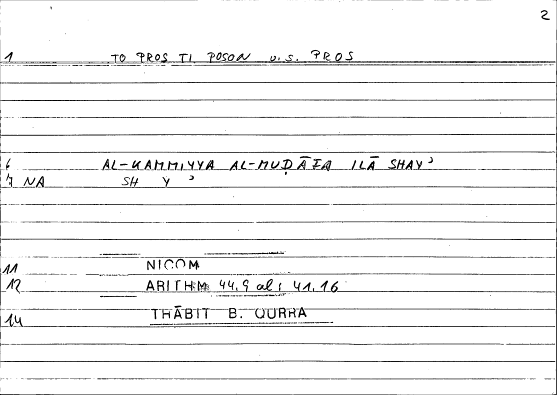 2
1 TO PROS TI POSON v.s. PROS
6 AL-KAMMIYYA AL-MUḌĀFA ILĀ SHAYʾ
7 NA SH Y ʾ
11 NICOM
12 ARITHM 44,9 al; 41,16
14 THĀBIT B. QURRA